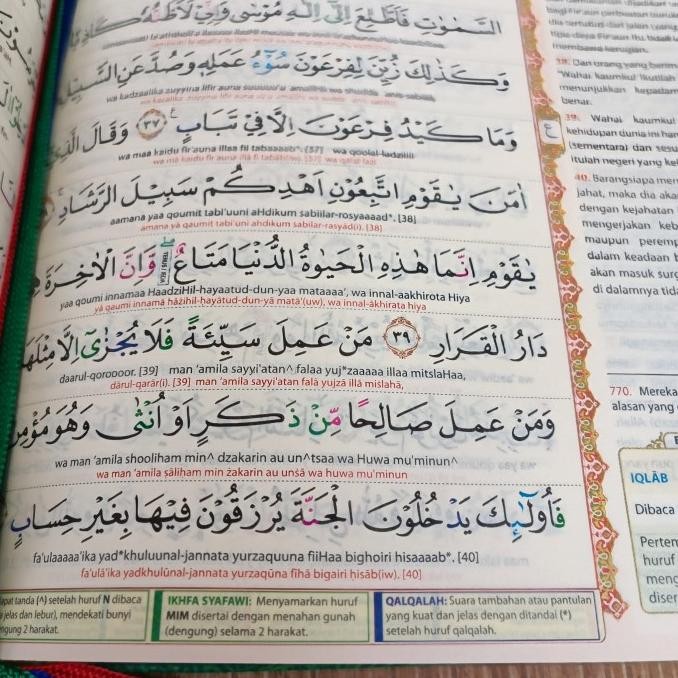 السَّمٰوٰتِ فَاَطَّلِعَ اِلٰٓى اِلٰهِ مُوْسٰى وَاِنِّيْ لَاَظُنُّهٗ كَاذِبًا
وَكَذٰلِكَ زُيِّنَ لِفِرْعَوْنَ سُوْۤءُ عَمَلِهٖ وَصُدَّ عَنِ السَّبِيْلِ
wa kadzaalika zuyyina lifir'auna
wa każālika zuyyina lifir'auna
وَمَا كَيْدُ فِرْعَوْنَ اِلَّا فِيْ تَبَابٍ ࣖ ٣٧ وَقَالَ الَّذِيْٓ
wa maa kaidu fir'auna illaa fii tabaaaab*. [37] wa qoolal-ladziiii
wa mā kaidu fir'auna illā fī tabāb(in). [37] wa qālal-lażī
اٰمَنَ يٰقَوْمِ اتَّبِعُوْنِ اَهْدِكُمْ سَبِيْلَ الرَّشَادِۚ
aamana yaa qoumit tabi'uuni aHdikum sabiilar-rosyaaaad*. [38]
āmana yā qaumit tabi'ūni ahdikum sabīlar-rasyād(i). [38]
يٰقَوْمِ اِنَّمَا هٰذِهِ الْحَيٰوةُ الدُّنْيَا مَتَاعٌ وَّاِنَّ الْاٰخِرَةَ هِيَ
yaa qoumi innamaa HaadziHil-hayaatud-dun-yaa mataaaa', wa innal-aakhirota Hiya
yā qaumi innamā hāżihil-ḥayātud-dun-yā matā'(uw), wa innal-ākhirata hiya
دَارُ الْقَرَارِ ٣٩ مَنْ عَمِلَ سَيِّئَةً فَلَا يُجْزٰىٓ اِلَّا مِثْلَهَا
daarul-qoroooor. [39] man 'amila sayyi'atan^ falaa yuj*zaaaaa illaa mitslaHaa,
dārul-qarār(i). [39] man 'amila sayyi'atan falā yujzā illā miṡlahā,
وَمَنْ عَمِلَ صَالِحًا مِّنْ ذَكَرٍ اَوْ اُنْثٰى وَهُوَ مُؤْمِنٌ
wa man 'amila shooliham min^ dzakarin au un^tsaa wa Huwa mu'minun^
wa man 'amila ṣāliḥam min żakarin au unṡā wa huwa mu'minun
فَاُولٰۤىِٕكَ يَدْخُلُوْنَ الْجَنَّةَ يُرْزَقُوْنَ فِيْهَا بِغَيْرِ حِسَابٍ
fa'ulaaaaa'ika yad*khuluunal-jannata yurzaquuna fiiHaa bighoiri hisaaaab*. [40]
fa'ulā'ika yadkhulūnal-jannata yurzaqūna fīhā bigairi ḥisāb(iw). [40]
tanda (^) setelah huruf N dibaca
jelas dan lebur), mendekati bunyi
2 harakat.
IKHFA SYAFAWI: Menyamarkan huruf
MIM disertai dengan menahan gunah
(dengung) selama 2 harakat.
QALQALAH: Suara tambahan atau pantulan
yang kuat dan jelas dengan ditandai (*)
setelah huruf qalqalah.
38. Dan orang yang
"Wahai kaumku! Ikutilah
menunjukkan kepadam
benar.
39. Wahai kaumku!
kehidupan dunia ini han
(sementara) dan sesu
itulah negeri yang kek
40. Barangsiapa men
jahat, maka dia aka
dengan kejahatan
mengerjakan keb
maupun peremp
dalam keadaan b
akan masuk surg
di dalamnya tida
770. Mereka
alasan yang
IQLĀB
Dibaca
Pertem
huruf
meng
diser